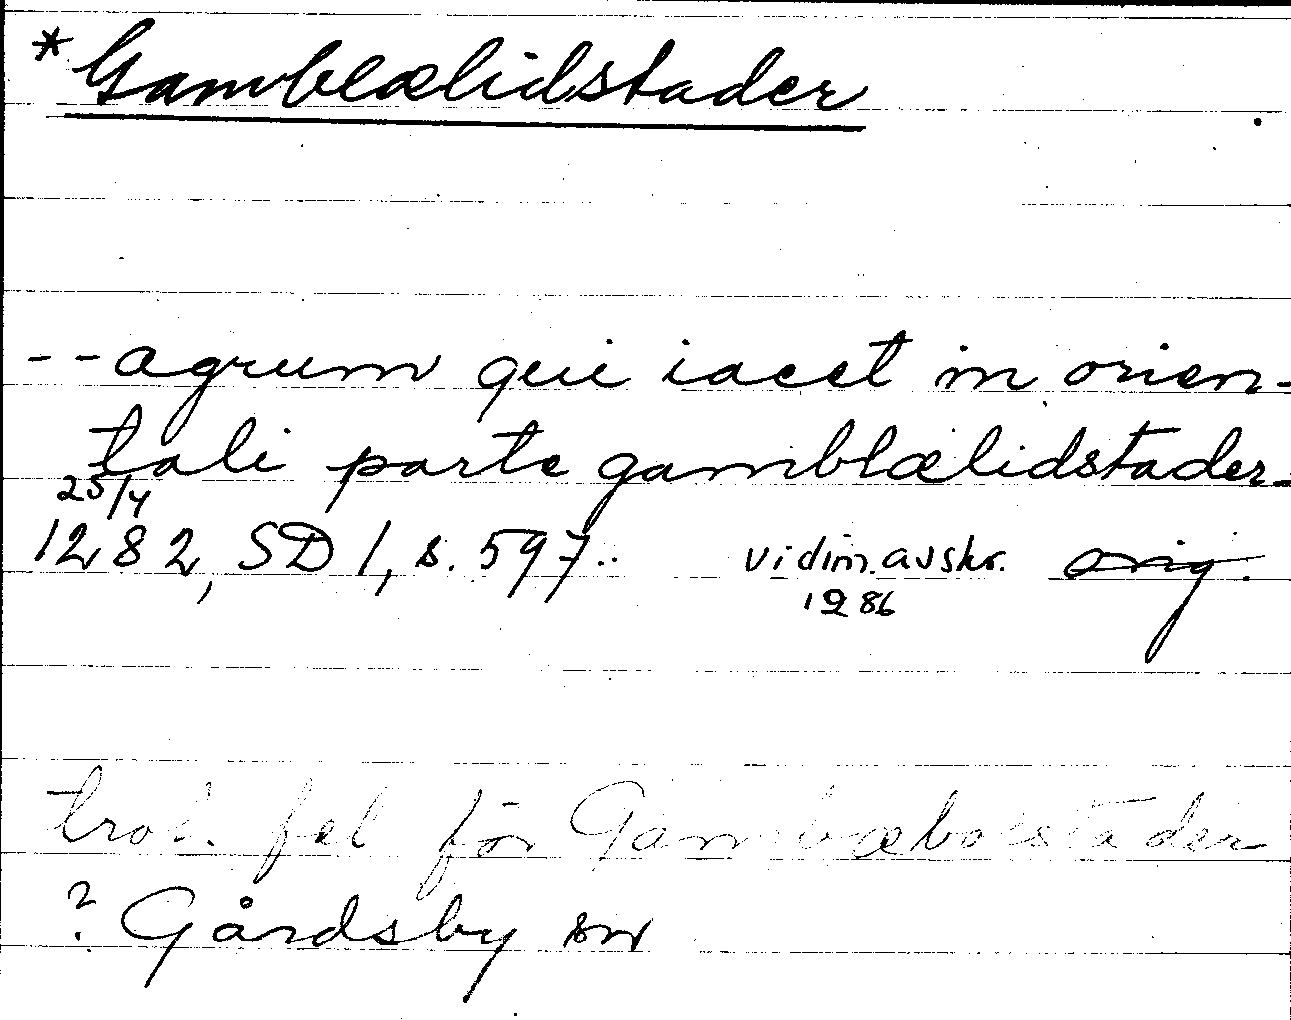 *Gamblælidstader
--agrum qui iacet in orien-
tali parte gamblælidstader-
25/4
1282, SD 1, s. 597.. vidim.avskr. orig.
1286
trol. fel för Gambæbolstader
? Gårdsby sn